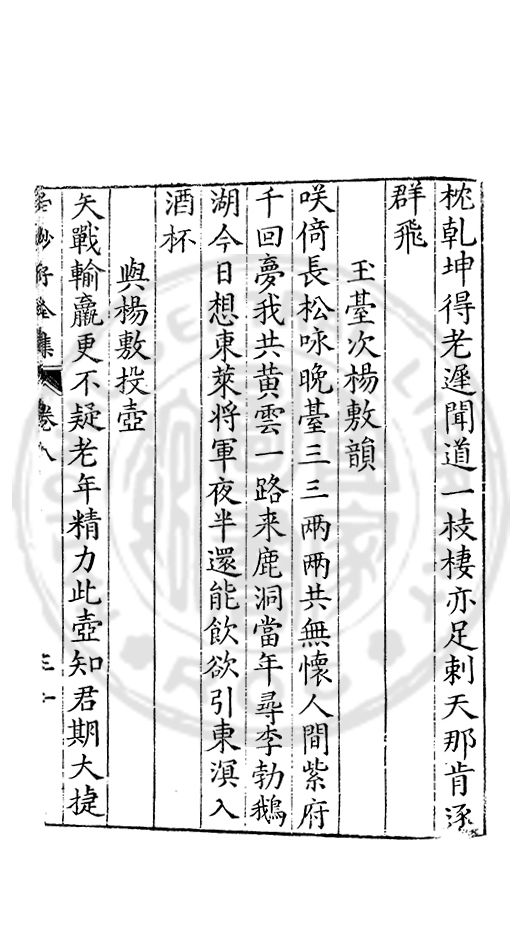 枕乹坤得老遲聞道一枝棲亦足刺天那肯逐
群飛
玉臺次楊敷韻
咲倚長松咏晚臺三三兩兩共無懷人間紫府
千回夢我共黃雲一路来鹿洞當年尋李勃鵝
湖今日想東萊將軍夜半還能飲欲引東溟入
酒杯
與楊敷投壺
矢戰輸贏更不疑老年精力此壺知君期大捷
全集
卷八